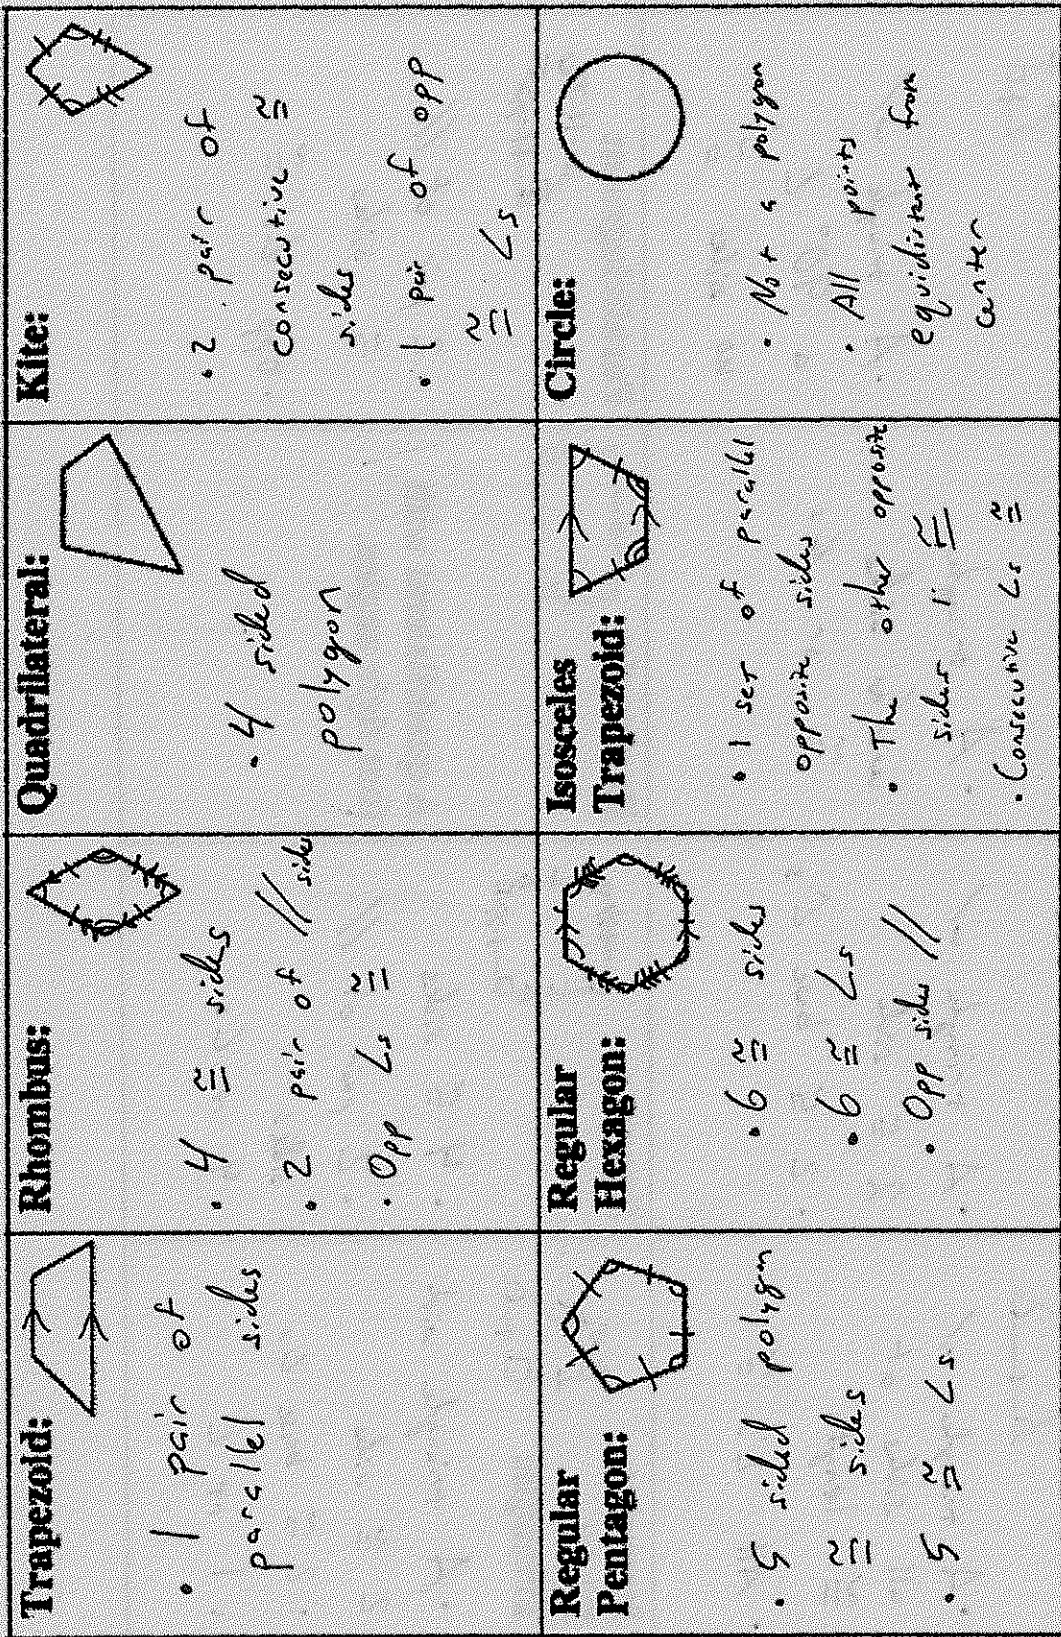 Trapezoid:
• 1 pair of
parallel sides
Rhombus:
• 4 ≅ sides
• 2 pair of // sides
• Opp ∠s ≅
Quadrilateral:
• 4 sided
polygon
Kite:
• 2 pair of
consecutive ≅
sides
• 1 pair of opp
≅ ∠s
Regular
Pentagon:
• 5 sided polygon
≅ sides
• 5 ≅ ∠s
Regular
Hexagon:
• 6 ≅ sides
• 6 ≅ ∠s
• Opp sides //
Isosceles
Trapezoid:
• 1 set of parallel
opposite sides
• The other opposite
sides ≅
• Consecutive ∠s ≅
Circle:
• Not a polygon
• All points
equidistant from
center